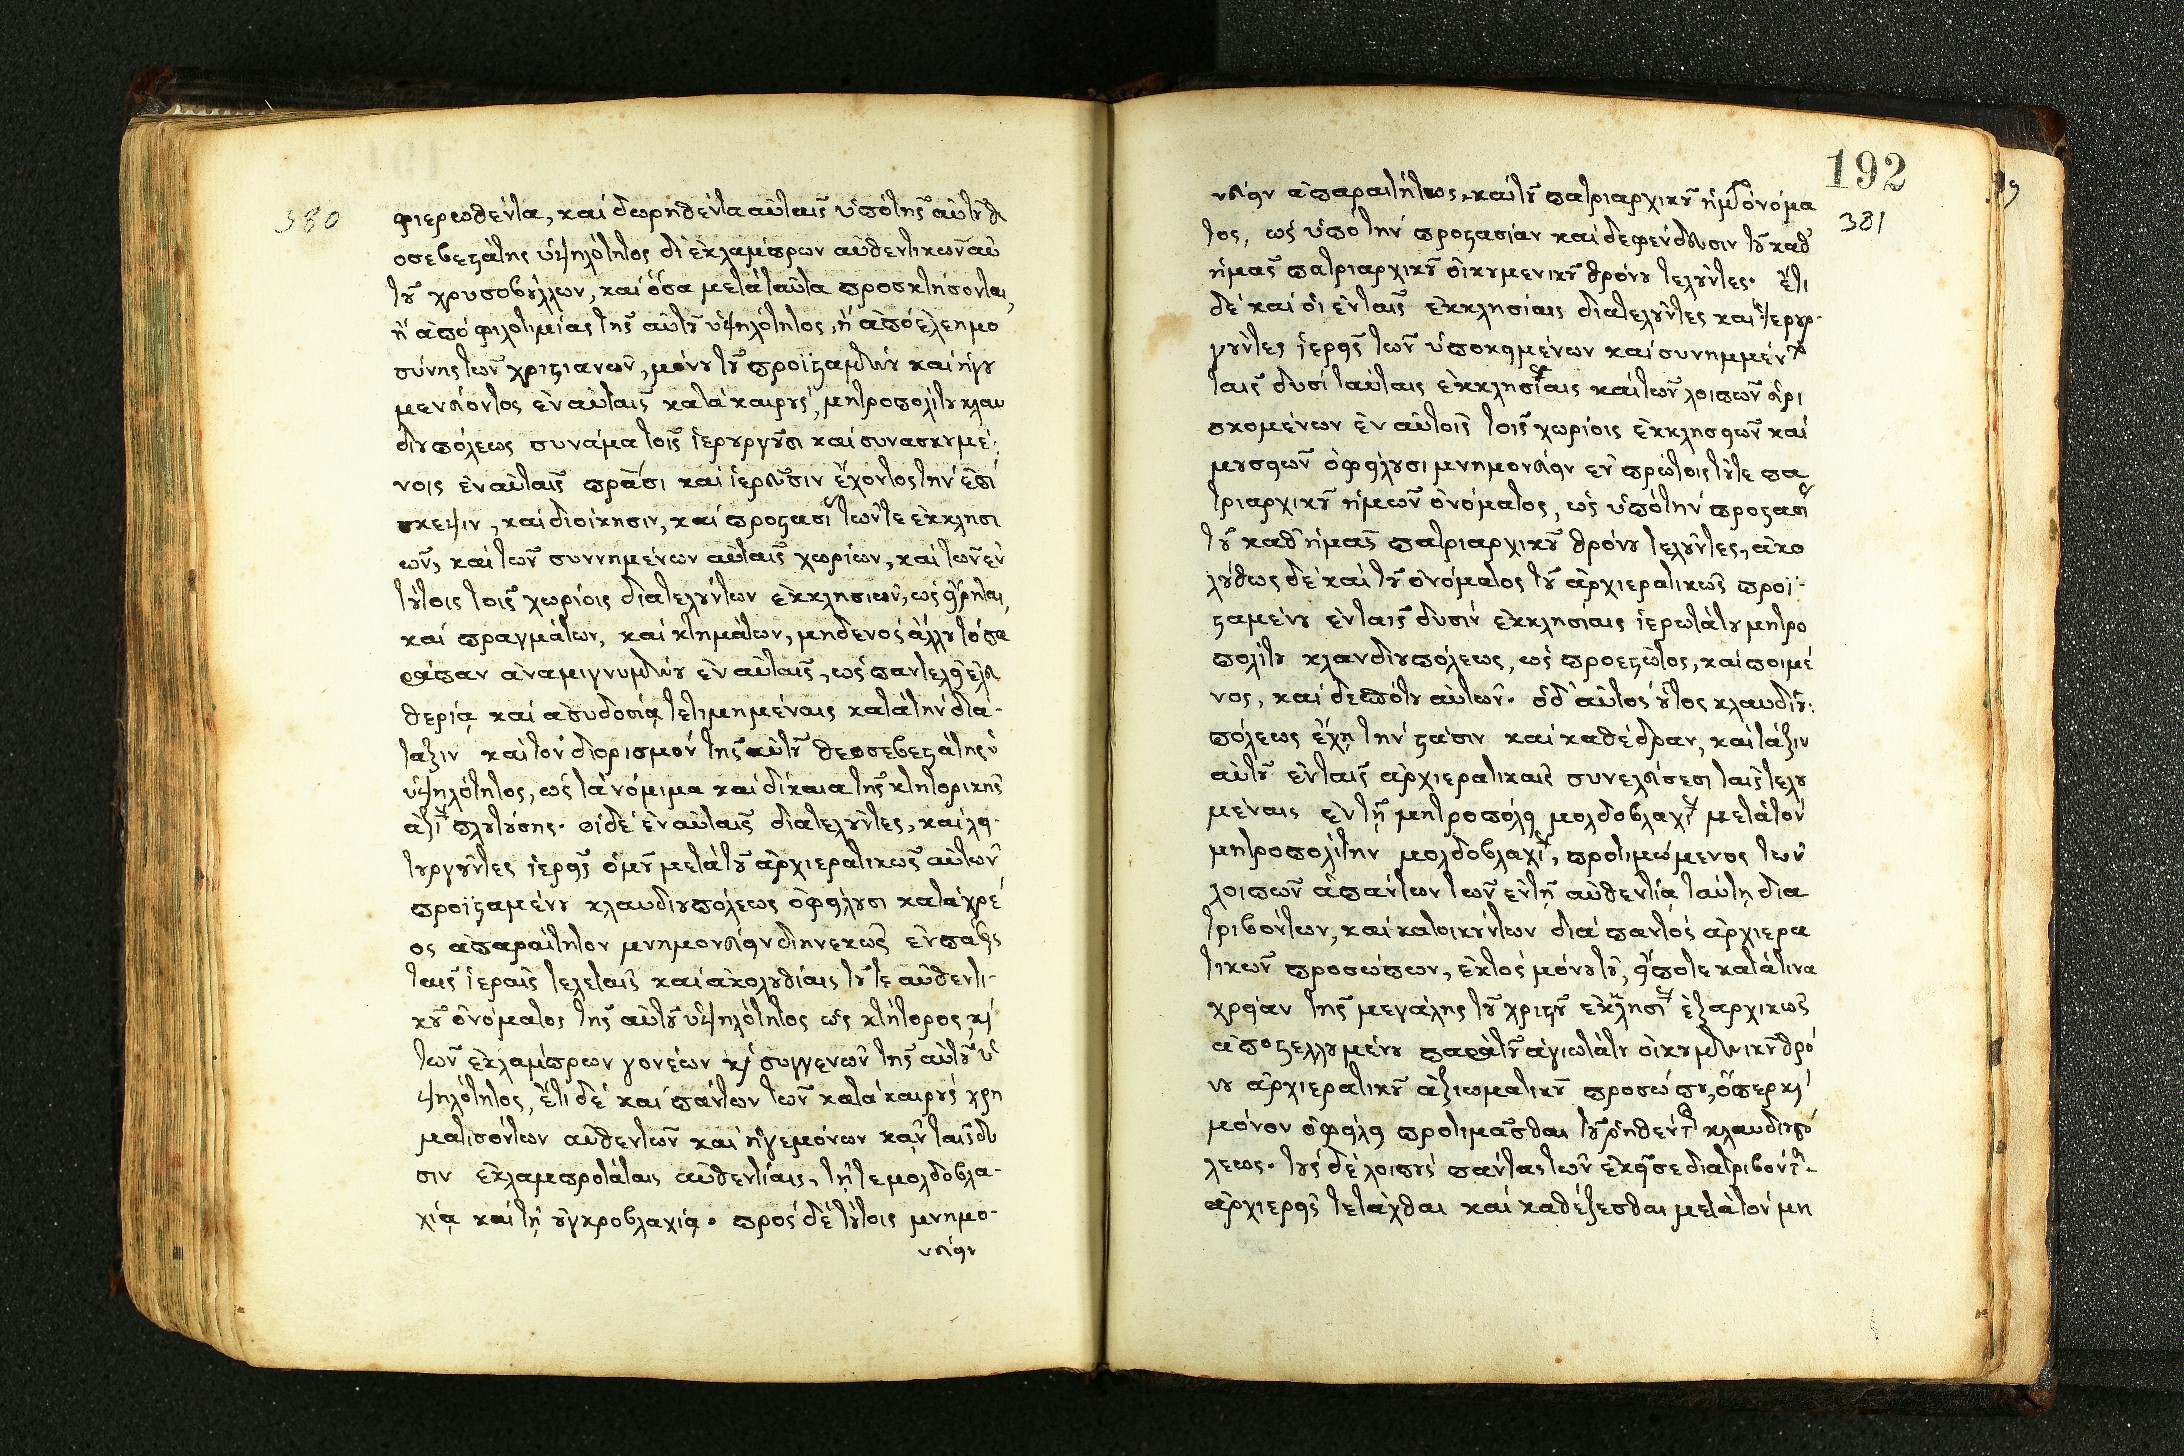 380
φιερωθέντα, καὶ δωρηθέντα αὐταῖς ὑπὸ τῆς αὐτοῦ θε
οσεβεστάτης ὑψηλότητος δι' ἐκλαμπρων αὐθεντικῶν αὐ
τοῦ χρυσοβούλλων, καὶ ὅσα μετὰ ταῦτα προσκτήσονται,
ἢ ἀπὸ φιλοτιμίας τῆς αὐτοῦ ὑψηλότητος, ἢ ἀπὸ ἐλεημο
σύνης τῶν χριστιανῶν, μόνου τοῦ προϊσταμένου καὶ ἡγου
μενεύοντος ἐν αὐταῖς κατὰ καιροὺς, μητροπολίτου κλαυ
διουπόλεως συνάμα τοῖς ἱερουργοῦσι καὶ συνασκουμέ-
νοις ἐν αὐταῖς πρᾶσι καὶ ἱερεῦσιν ἔχοντος τὴν ἐπί
σκεψιν, καὶ διοίκησιν, καὶ προστασίαν τῶντε ἐκκλησι
ῶν, καὶ τῶν συννημένων αὐταῖς χωρίων, καὶ τῶν ἐν
τούτοις τοῖς χωρίοις διατελούντων ἐκκλησιῶν, ὡς εἴρηται,
καὶ πραγμάτων, καὶ κτημάτων, μηδενὸς ἄλλου τὸ πα
ράπαν ἀναμιγνυμένου ἐν αὐταῖς, ὡς παντελεῖ ἐλευ
θερίᾳ καὶ ἀσυδοσίᾳ τετιμημέναις κατὰ τὴν διά-
ταξιν καὶ τὸν διορισμὸν τῆς αὐτοῦ θεοσεβεστάτης ὑ
ὑψηλότητος, ὡς τὰ νόμιμα καὶ δίκαια τῆς κτητορικῆς
ἀξίας πλουτούσης. οἱ δὲ ἐν αὐταῖς διατελοῦντες, καὶ λει-
τουργοῦντες ἱερεῖς ὁμοῦ μετὰ τοῦ ἀρχιερατικῶς αὐτῶν
προϊσταμένου κλαυδιουπόλεως ὀφείλουσι κατὰ χρέ
ος ἀπαραίτητον μνημονεύειν διηνεκῶς ἐν πάσαις
ταῖς ἱεραῖς τελεταῖς καὶ ἀκολουθίαις τοῦτε αὐθεντι-
κοῦ ὀνόματος τῆς αὐτοῦ ὑψηλότητος ὡς κτήτορος, καὶ
τῶν ἐκλαμπρων γονέων καὶ συγγενῶν τῆς αὐτοῦ ὑ
ψηλότητος, ἔτι δὲ καὶ πάντων τῶν κατὰ καιροὺς χρη
ματισόντων αὐθεντῶν καὶ ἡγεμόνων κἀν ταῖς δυ
σιν ἐκλαμπροτάταις αὐθεντίαις, τῇτε μολδοβλα-
χίᾳ καὶ τῇ οὐγκροβλαχίᾳ. πρὸς δὲ τούτοις μνημο-
νεύειν
192
381
νεύειν ἀπαραιτήτως, καὶ τοῦ πατριαρχικοῦ ἡμῶν ὀνόμα
τος, ὡς ὑπὸ τὴν προστασίαν καὶ δεφένδευσιν τοῦ καθ'
ἡμᾶς πατριαρχικοῦ οἰκουμενικοῦ θρόνου τελοῦντες. ἔτι
δὲ καὶ οἱ ἐν ταῖς ἐκκλησίαις διατελοῦντες καὶ ἱερουρ-
γοῦντες ἱερεῖς τῶν ὑποκειμένων καὶ συνημμένων
ταῖς δυσὶ ταύταις ἐκκλησίαις καὶ τῶν λοιπῶν εὑρι
σκομένων ἐν αὐτοῖς τοῖς χωρίοις ἐκκλησειῶν καὶ
μουσειῶν ὀφείλουσι μνημονεύειν ἐν πρώτοις τοῦτε πα
τριαρχικοῦ ἡμεῶν ὀνόματος, ὡς ὑπὸ τὴν προστασίαν
τοῦ καθ' ἡμᾶς πατριαρχικοῦ θρόνου τελοῦντες, ἀκο
λούθως δὲ καὶ τοῦ ὀνόματος τοῦ ἀρχιερατικῶς προϊ-
σταμένου ἐν ταῖς δυσὶν ἐκκλησίαις ἱερωτάτου μητρο
πολίτου κλανδιουπόλεως, ὡς προεστῶτος, καὶ ποιμέ
νος, καὶ δεσπότου αὐτῶν. ὁ δ' αὐτὸς οὗτος κλαυδιου-
πόλεως ἔχῃ τὴν στάσιν καὶ καθέδραν, καὶ τάξιν
αὐτοῦ ἐν ταῖς ἀρχιερατικαῖς συνελεύσεσι ταῖς τελου
μέναις ἐν τῇ μητροπόλει μολδοβλαχίας μετὰ τὸν
μητροπολίτην μολδοβλαχίας, προτιμώμενος τῶν
λοιπῶν ἁπάντων τῶν ἐν τῇ αὐθεντίᾳ ταύτῃ δια
τριβόντων, καὶ κατοικούντων διὰ παντὸς ἀρχιερα
τικῶν προσώπων, ἐκτὸς μόνου τοῦ, εἴποτε κατά τινα
χρείαν τῆς μεγάλης τοῦ χριστοῦ ἐκκλησίας ἐξαρχικῶς
ἀποστελλομένου παρὰ τοῦ ἁγιωτάτου οἰκουμενικοῦ θρό
νου ἀρχιερατικοῦ ἀξιωματικοῦ προσώπου, ὅπερ καὶ
μόνον ὀφείλει προτιμᾶσθαι τοῦ ῥηθέντος κλαυδιουπό
λεως. τοὺς δὲ λοιποὺς πάντας τῶν ἐκεῖσε διατριβόντων
ἀρχιερεῖς τετάχθαι καὶ καθέζεσθαι μετὰ τὸν μη